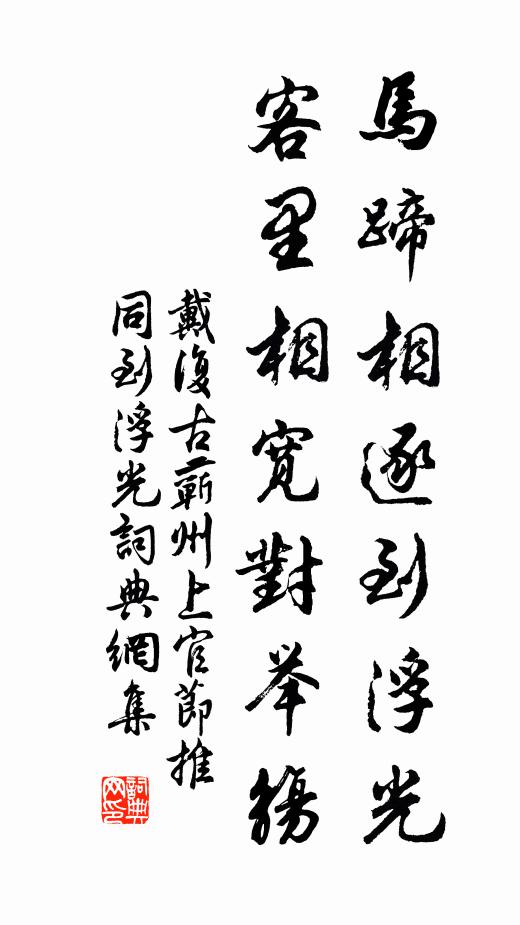 馬蹄相逐到浮光
客里相寬對举觴
戴復古蘄州上官節推
同到浮光詞典網集
詞典
网印